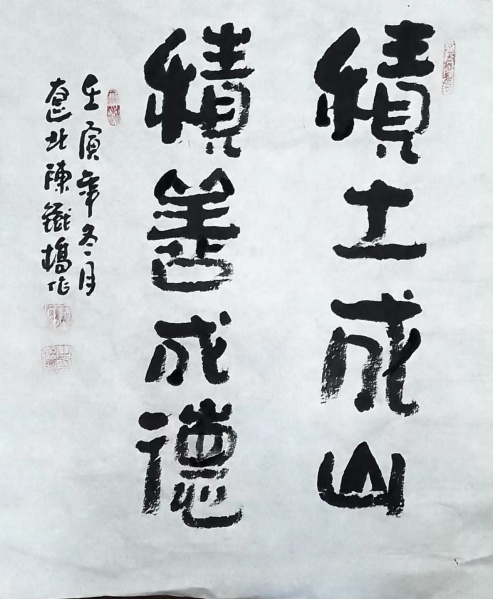 積土成山
積善成德
壬寅年冬月
北陳鐵橋作